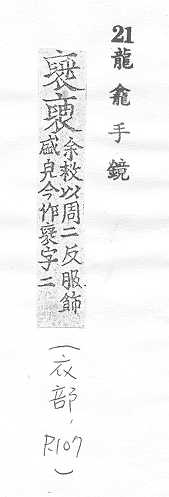 21
龍龕手鏡
余救以周二反服飾
盛皃今作褎字二
(衣部, P.107)